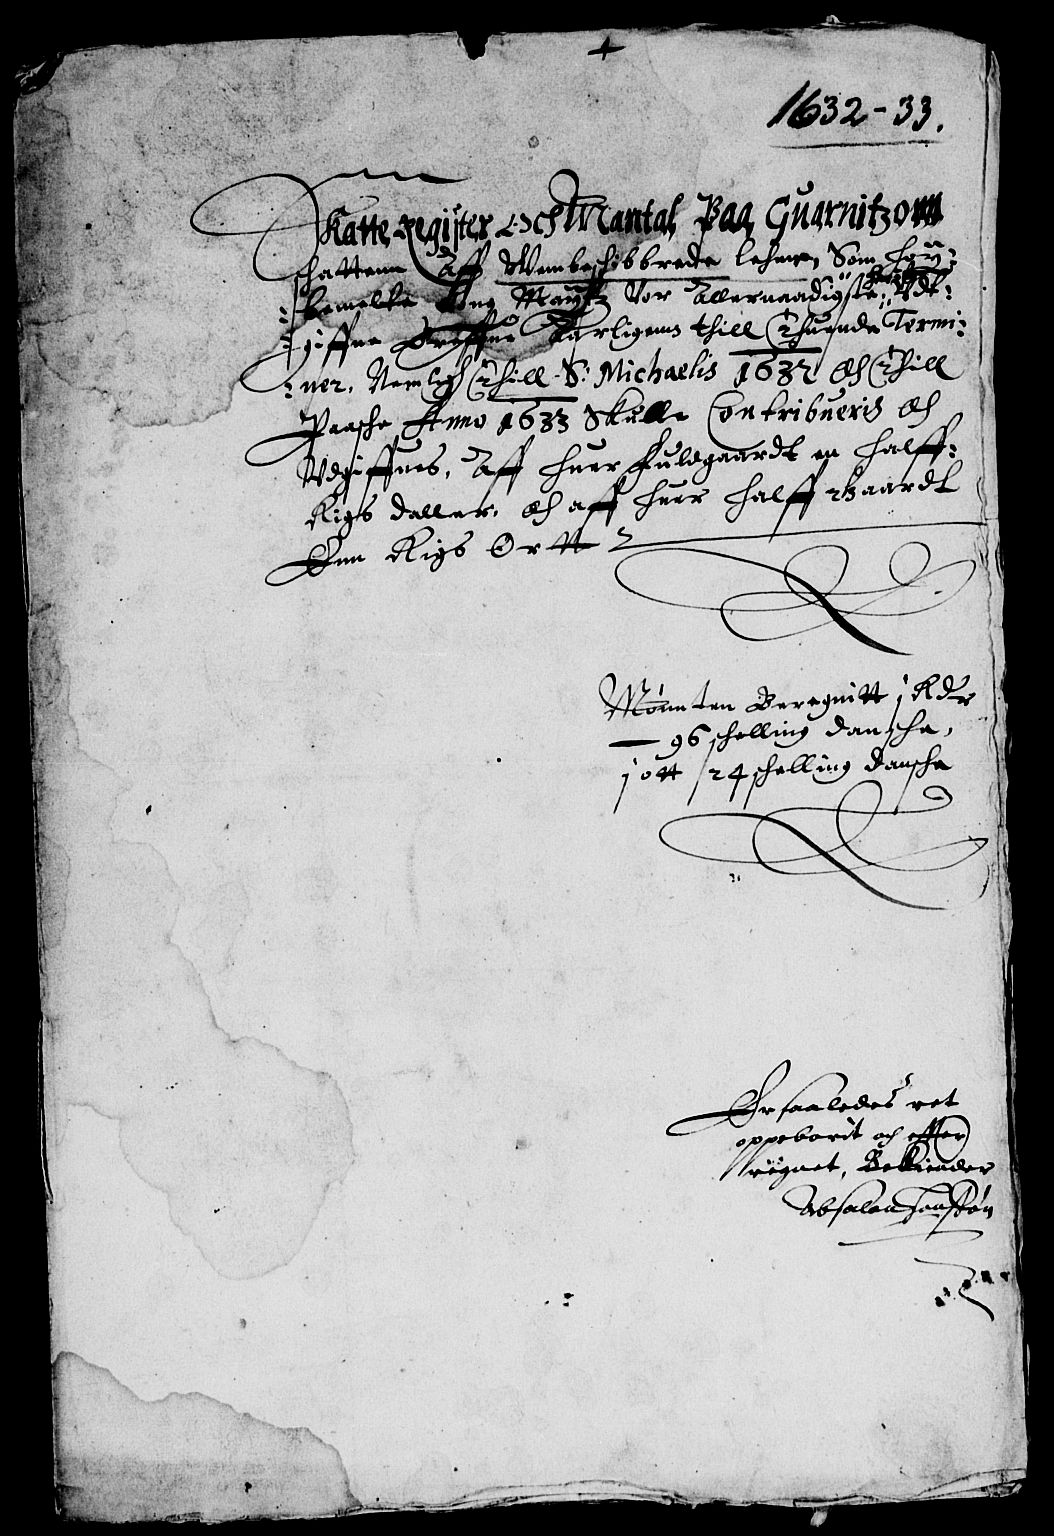 1632-33.
Skatte Register Och Mantal, Paa Guarnitzonn
schattenn Aff Annbeschibbrede lehnen, Som høy=
=bemelte Kng. Maÿtz Vor Allernaadigste Herris Vdt=
=giffne Breffue Aarligenn thill Thuende Termi=
=ner, Nemligh Thill S: Michaelis 1632 och Thill
Paasche Anno 1633 Skulle Contribueris och
Vdgiffues, Aff huer fuldgaardt en halff=
Rigs daller, och aff huer halff gaardt
Enn Rigs Ortt
Mønnten Beregnitt j Rdr
96 schelling dansche,
j ott 24 schelling dansche
Er saaledes ret
oppeborit och effter
reignet, Bekiender
Absalon